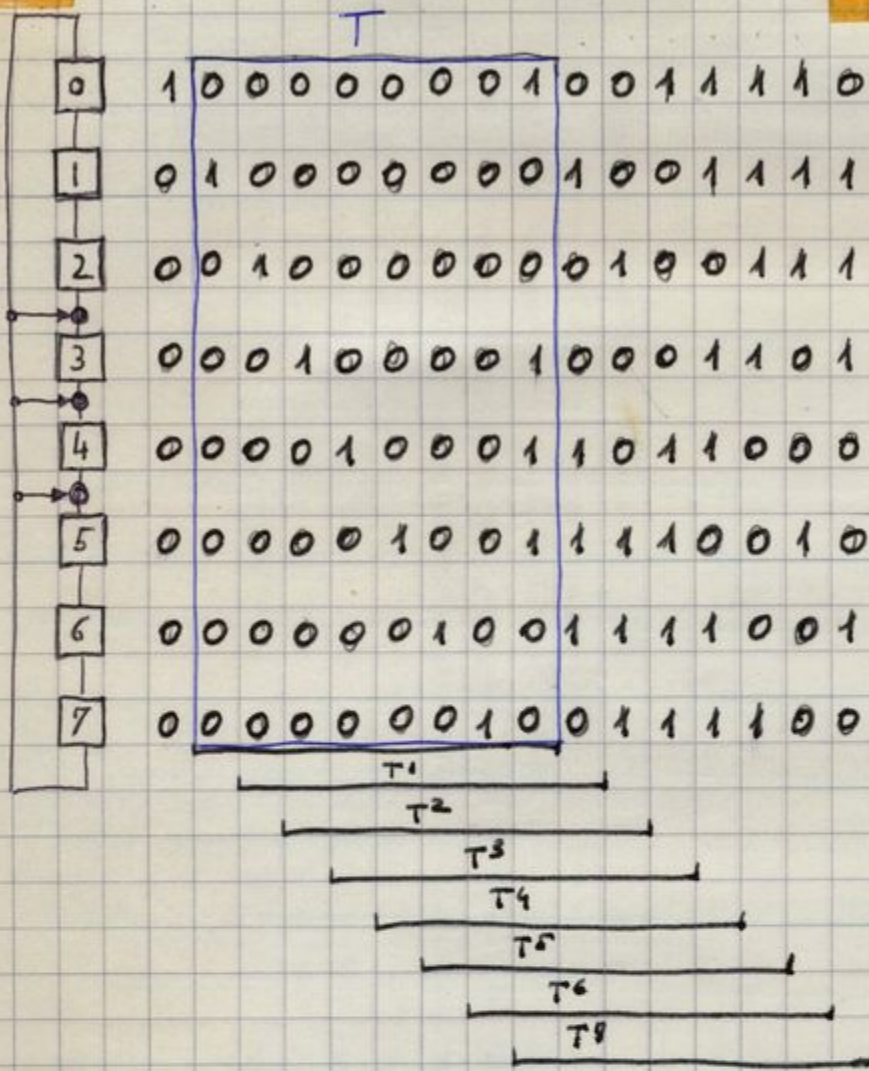 T
0 1 0 0 0 0 0 0 0 1 0 0 1 1 1 1 0
1 0 1 0 0 0 0 0 0 0 1 0 0 1 1 1 1
2 0 0 1 0 0 0 0 0 0 0 1 0 0 1 1 1
3 0 0 0 1 0 0 0 0 1 0 0 0 1 1 0 1
4 0 0 0 0 1 0 0 0 1 1 0 1 1 0 0 0
5 0 0 0 0 0 1 0 0 1 1 1 1 0 0 1 0
6 0 0 0 0 0 0 1 0 0 1 1 1 1 0 0 1
7 0 0 0 0 0 0 0 1 0 0 1 1 1 1 0 0
T¹
T²
T³
T⁴
T⁵
T⁶
T⁸